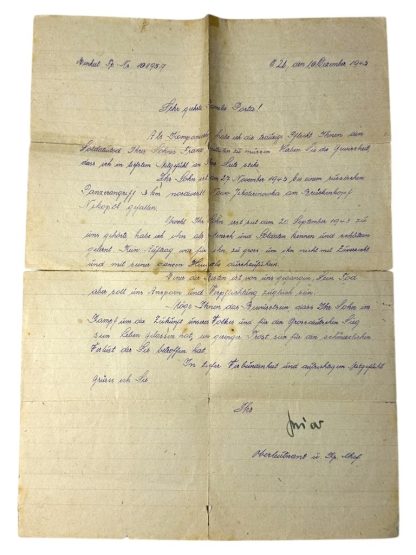 Sp. Nr. 19195 7
O.U., den 10. Dezember 1943
Sehr geehrte Familie Porta!
Als Kompaniechef habe ich die traurige Pflicht Ihnen den
Heldentod Ihres Sohnes Franz mitteilen zu müssen. Haben Sie die Gewissheit,
dass ich in tiefstem Mitgefühl an Ihrer Seite stehe.
Ihr Sohn ist am 27. November 1943 bei einem russischen
Panzerangriff 5 km nordwestl. am Brückenkopf
Nikopol gefallen.
Ihr Sohn erst seit dem 20. September 1943 zu
uns gehörte habe ich ihn als Mensch und Soldaten kennen und schätzen
gelernt. Kein Auftrag war für ihn zu gross um ihn nicht mit Zuversicht
und mit seiner ganzen auszuführen.
Einer der Besten ist von uns gegangen. Sein Tod
aber soll uns Ansporn und Verpflichtung zugleich sein.
Möge Ihnen das Bewusstsein dass Ihr Sohn im
Kampf um die Zukunft unseres Volkes und für den Grossdeutschen Sieg
sein Leben gelassen hat, ein geringer Trost sein für den schmerzlichen
Verlust der Sie betroffen hat.
In tiefer Verbundenheit und aufrichtigem Mitgefühl
grüsse ich Sie
Ihr
Oberleutnant u. Kp. Chef.